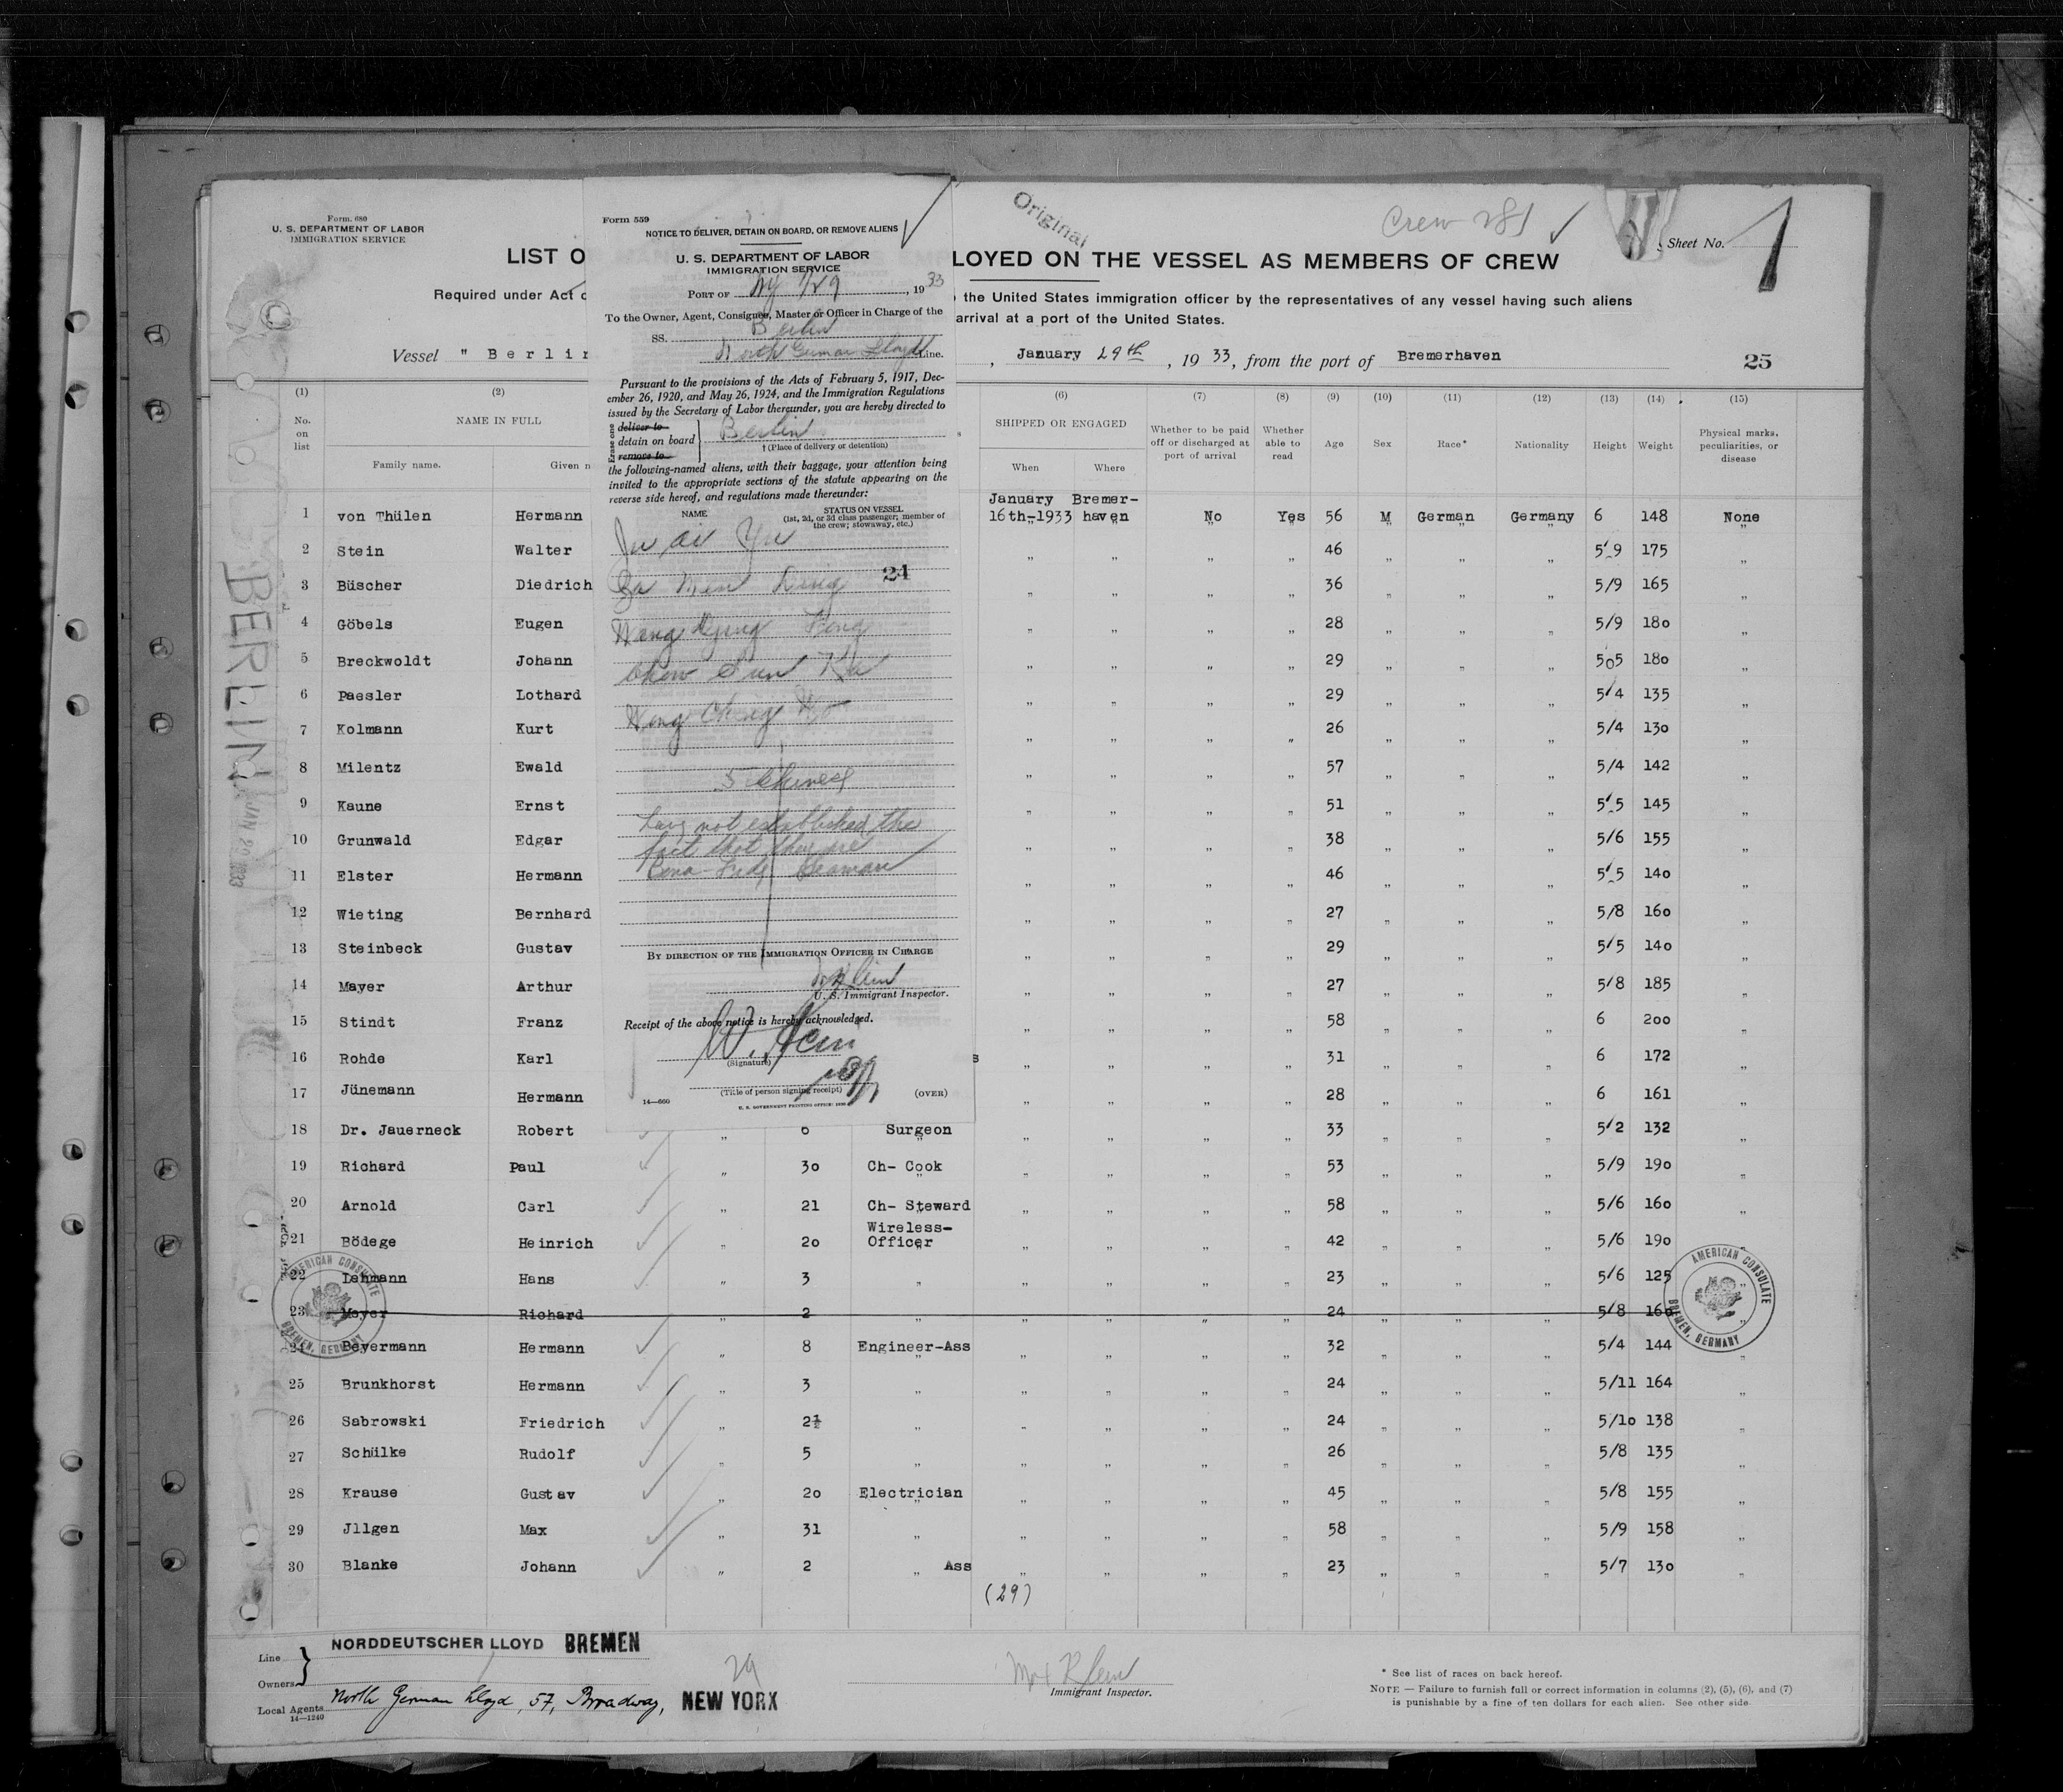 Form. 680
U. S. DEPARTMENT OF LABOR
IMMIGRATION SERVICE
LIST O
Required under Act o
Vessel " Berlin
Original
Crew 281
Sheet No. 1
LOYED ON THE VESSEL AS MEMBERS OF CREW
the United States immigration officer by the representatives of any vessel having such aliens
arrival at a port of the United States.
, January 29th , 19 33, from the port of Bremerhaven
25
Form 559
NOTICE TO DELIVER, DETAIN ON BOARD, OR REMOVE ALIENS
U. S. DEPARTMENT OF LABOR
IMMIGRATION SERVICE
PORT OF NY 1/29 , 19 33
To the Owner, Agent, Consignee, Master or Officer in Charge of the
SS. Berlin
North German Lloyd Line.
Pursuant to the provisions of the Acts of February 5, 1917, Dec-
ember 26, 1920, and May 26, 1924, and the Immigration Regulations
issued by the Secretary of Labor thereunder, you are hereby directed to
Erase one
deliver to
detain on board Berlin
remove to
† (Place of delivery or detention)
the following-named aliens, with their baggage, your attention being
invited to the appropriate sections of the statute appearing on the
reverse side hereof, and regulations made thereunder:
NAME STATUS ON VESSEL
(1st, 2d, or 3d class passenger; member of
the crew; stowaway, etc.)
Ju ai Yu
24
Chow Sun Ka
5 Chinese
not established the
fact that they are
Bona-Fide Seaman
BY DIRECTION OF THE IMMIGRATION OFFICER IN CHARGE
Klein
U. S. Immigrant Inspector.
Receipt of the above notice is hereby acknowledged.
W.
(Signature)
(Title of person signing receipt)
14—660
U. S. GOVERNMENT PRINTING OFFICE:
(OVER)
(1) (2) (6) (7) (8) (9) (10) (11) (12) (13) (14) (15)
No. on list
NAME IN FULL
Family name. Given n
SHIPPED OR ENGAGED
When Where
Whether to be paid off or discharged at port of arrival
Whether able to read
Age Sex Race* Nationality Height Weight
Physical marks, peculiarities, or disease
1 von Thülen Hermann January 16th-1933 Bremer-haven No Yes 56 M German Germany 6 148 None
2 Stein Walter " " " " 46 " " " 5'9 175 "
3 Büscher Diedrich " " " " 36 " " " 5/9 165 "
4 Göbels Eugen " " " " 28 " " " 5/9 180 "
5 Breckwoldt Johann " " " " 29 " " " 505 180 "
6 Paesler Lothard " " " " 29 " " " 5/4 135 "
7 Kolmann Kurt " " " " 26 " " " 5/4 130 "
8 Milentz Ewald " " " " 57 " " " 5/4 142 "
9 Kaune Ernst " " " " 51 " " " 5'5 145 "
10 Grunwald Edgar " " " " 38 " " " 5/6 155 "
11 Elster Hermann " " " " 46 " " " 5'5 140 "
12 Wieting Bernhard " " " " 27 " " " 5/8 160 "
13 Steinbeck Gustav " " " " 29 " " " 5/5 140 "
14 Mayer Arthur " " " " 27 " " " 5/8 185 "
15 Stindt Franz " " " " 58 " " " 6 200 "
16 Rohde Karl s " " " " 31 " " " 6 172 "
17 Jünemann Hermann " " " " 28 " " " 6 161 "
18 Dr. Jauerneck Robert " 6 Surgeon " " " " 33 " " " 5'2 132 "
19 Richard Paul " 30 Ch- Cook " " " " 53 " " " 5/9 190 "
20 Arnold Carl " 21 Ch- Steward " " " " 58 " " " 5/6 160 "
21 Bödege Heinrich " 20 Wireless-Officer " " " " 42 " " " 5/6 190 "
22 Lehmann Hans " 3 " " " " " 23 " " " 5/6 125 "
23 Meyer Richard " 2 " " " " " 24 " " " 5/8 160 "
24 Beyermann Hermann " 8 Engineer-Ass " " " " 32 " " " 5/4 144 "
25 Brunkhorst Hermann " 3 " " " " " 24 " " " 5/11 164 "
26 Sabrowski Friedrich " 2½ " " " " " 24 " " " 5/10 138 "
27 Schülke Rudolf " 5 " " " " " 26 " " " 5/8 135 "
28 Krause Gustav " 20 Electrician " " " " 45 " " " 5/8 155 "
29 Jllgen Max " 31 " " " " " 58 " " " 5/9 158 "
30 Blanke Johann " 2 " Ass " " " " 23 " " " 5/7 130 "
(29)
BERLIN
JAN 29 1933
AMERICAN CONSULATE
BREMEN, GERMANY
AMERICAN CONSULATE
BREMEN, GERMANY
Line
Owners
NORDDEUTSCHER LLOYD BREMEN
Local Agents North German Lloyd, 57, Broadway, NEW YORK
14—1240
29
Klein
Immigrant Inspector.
* See list of races on back hereof.
NOTE — Failure to furnish full or correct information in columns (2), (5), (6), and (7)
is punishable by a fine of ten dollars for each alien. See other side.